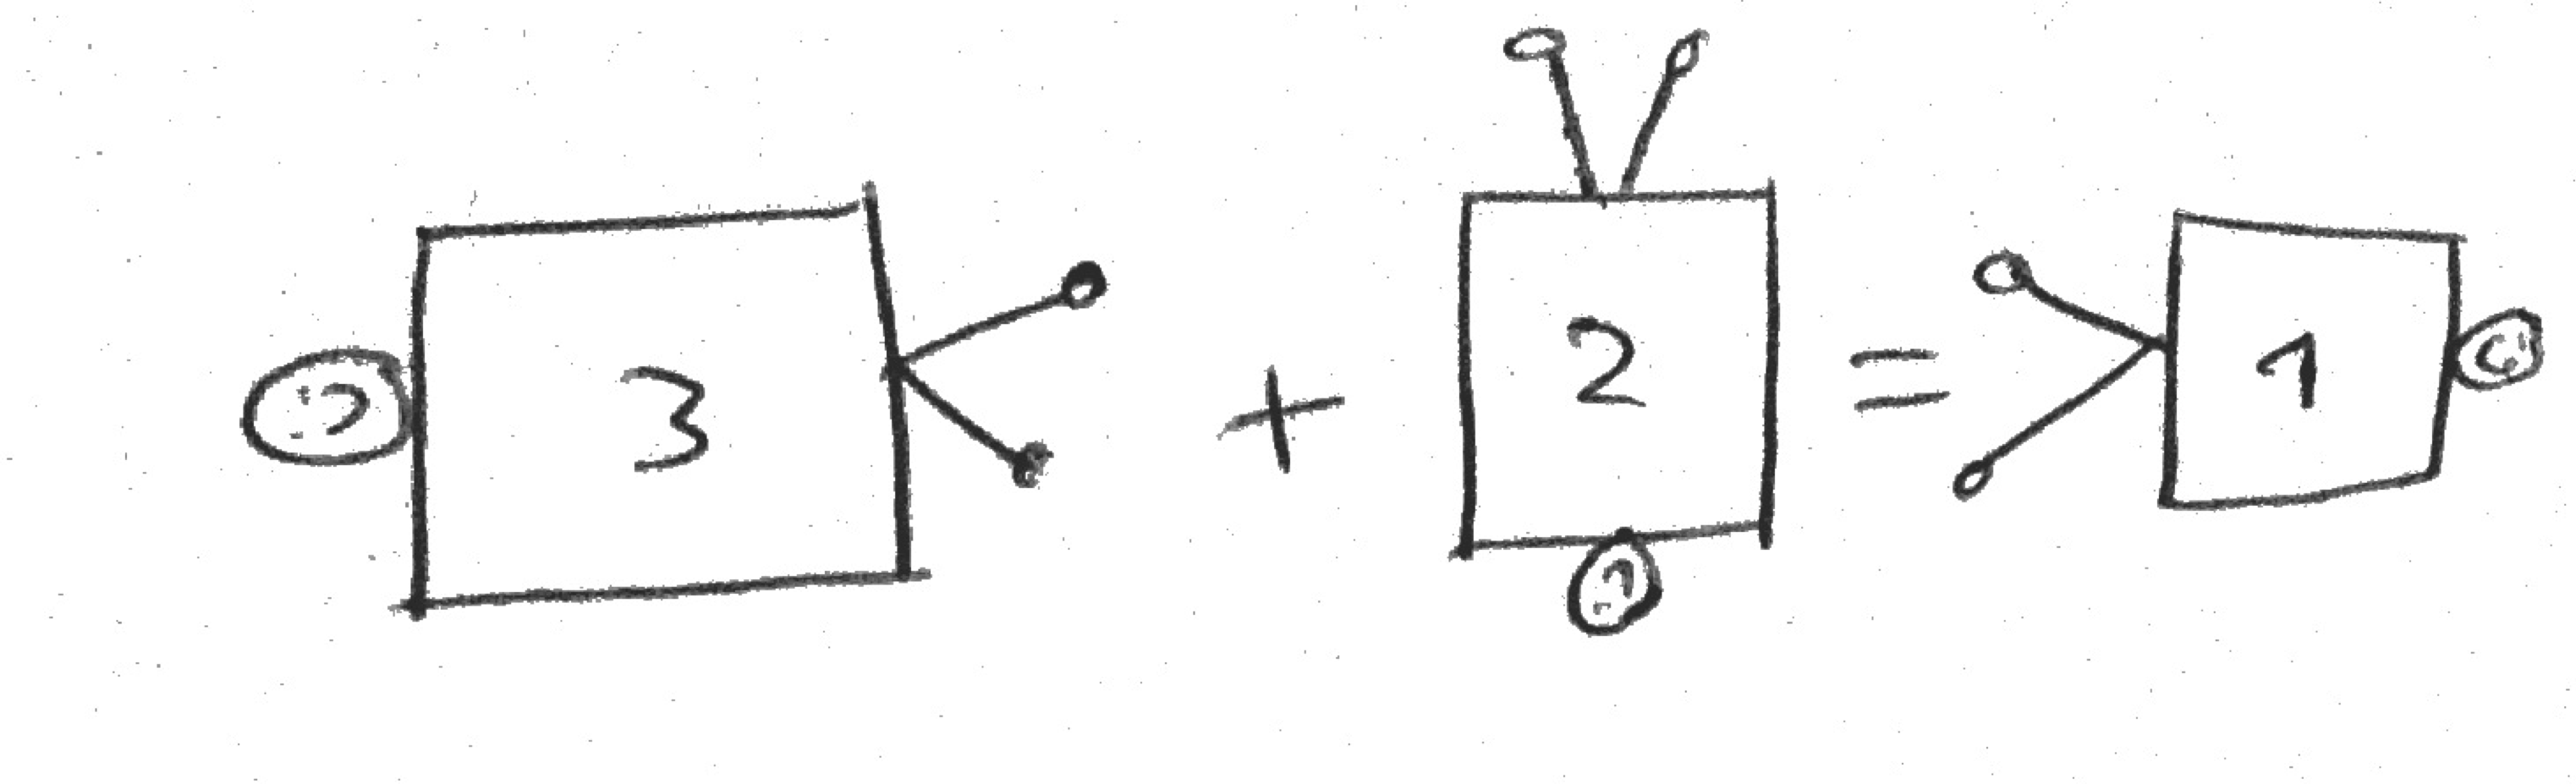 3 + 2 = 1